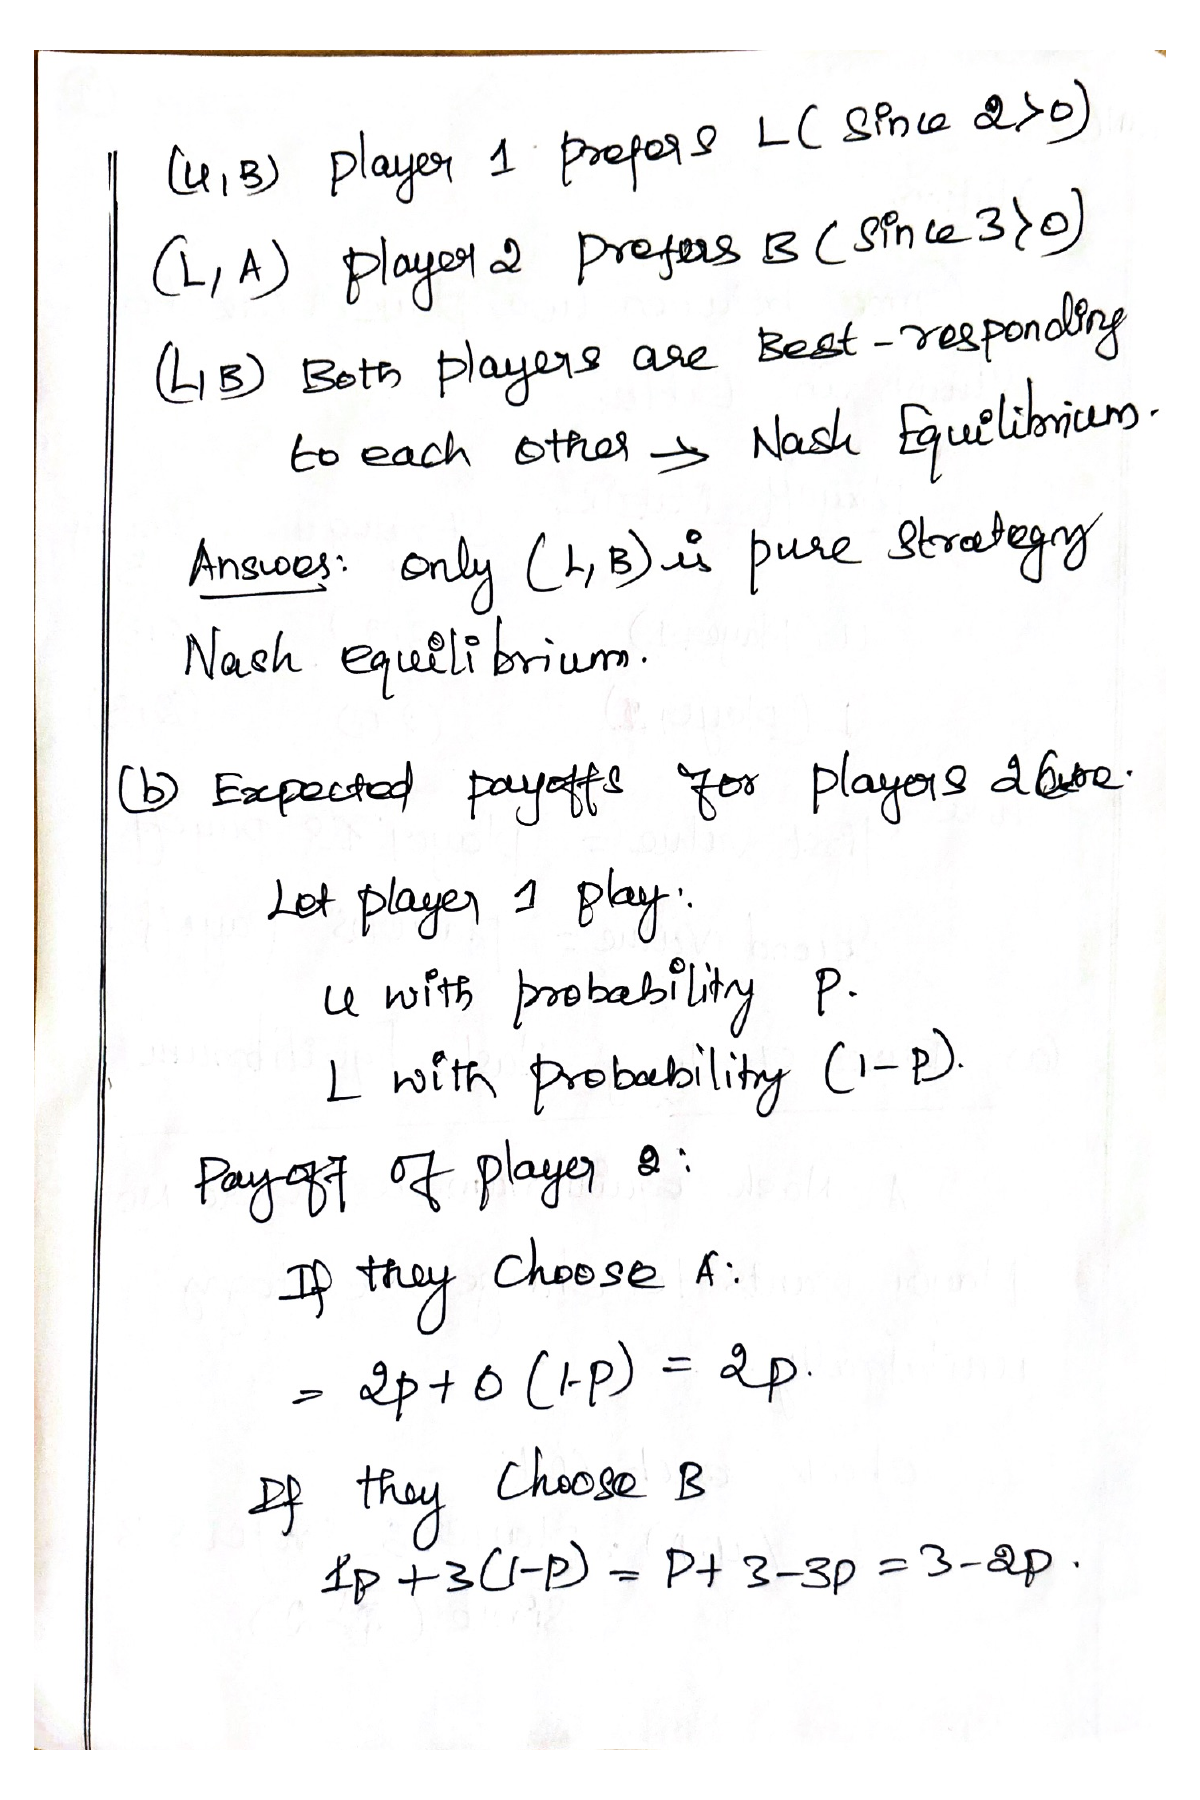 (U,B) player 1 prefers L( Since 2>0)
(L, A) player 2 prefers B ( Since 3>0)
(L,B) Both players are Best-responding
to each other → Nash Equilibrium.
Answer: only (L, B) is pure Strategy
Nash equilibrium.
(b) Expected payoffs for players 2
Let player 1 play:
U with probability P.
L with probability (1-P).
Payoff of player 2:
If they choose A:
= 2p+0 (1-P) = 2p.
If they choose B
1p +3(1-P) = P+ 3-3p = 3-2p.